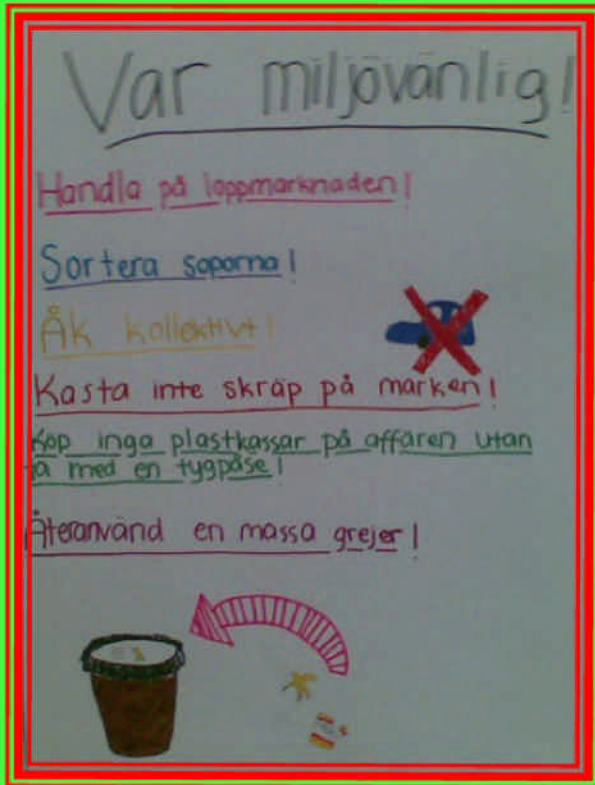 Var miljövänlig!
Handla på loppmarknaden!
Sortera soporna!
Åk kollektivt!
Kasta inte skräp på marken!
Köp inga plastkassar på affären utan
ta med en tygpåse!
Återanvänd en massa grejer!